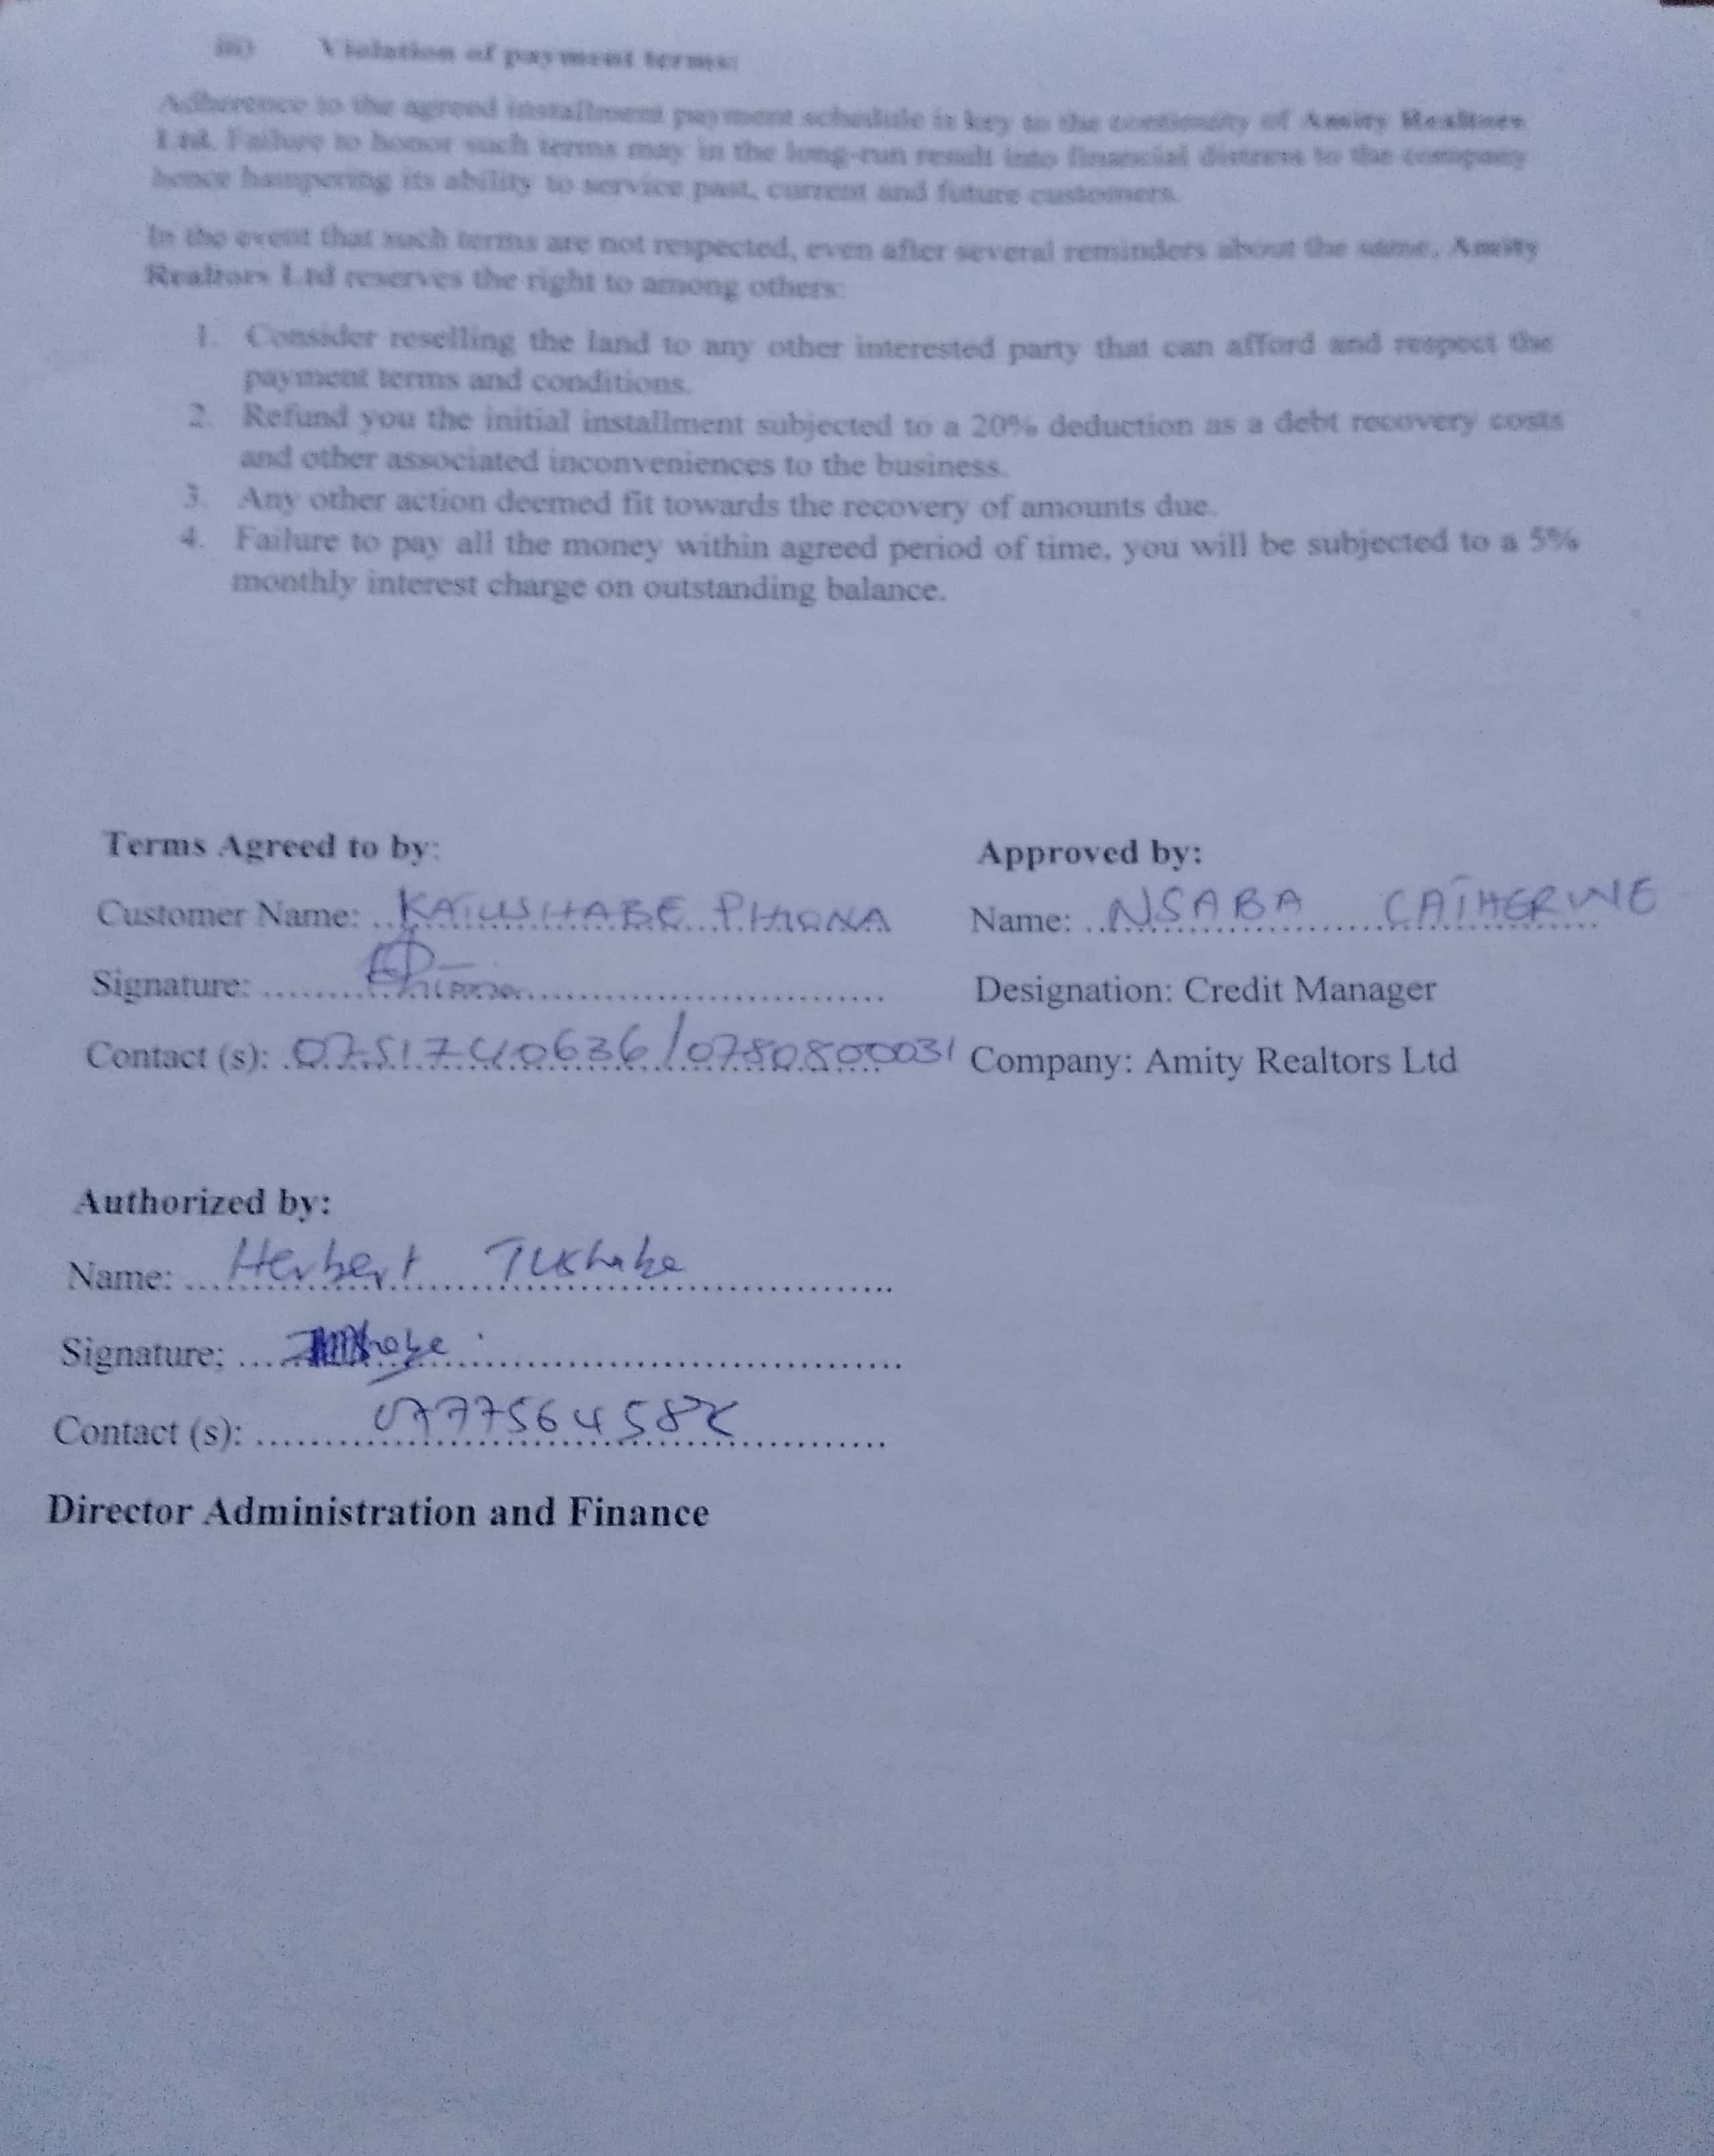 iii) Violation of payment terms:
Adherence to the agreed installment payment schedule is key to the continuity of Amity Realtors
Ltd. Failure to honor such terms may in the long-run result into financial distress to the company
hence hampering its ability to service past, current and future customers.
In the event that such terms are not respected, even after several reminders about the same, Amity
Realtors Ltd reserves the right to among others:
1. Consider reselling the land to any other interested party that can afford and respect the
payment terms and conditions.
2. Refund you the initial installment subjected to a 20% deduction as a debt recovery costs
and other associated inconveniences to the business.
3. Any other action deemed fit towards the recovery of amounts due.
4. Failure to pay all the money within agreed period of time, you will be subjected to a 5%
monthly interest charge on outstanding balance.
Terms Agreed to by:
Approved by:
Customer Name: PHIONA
Name: NSABA CATHERINE
Signature:
Designation: Credit Manager
Contact (s): 0751740636/0780800031
Company: Amity Realtors Ltd
Authorized by:
Name: Herbert Tushabe
Signature;
Contact (s):
Director Administration and Finance